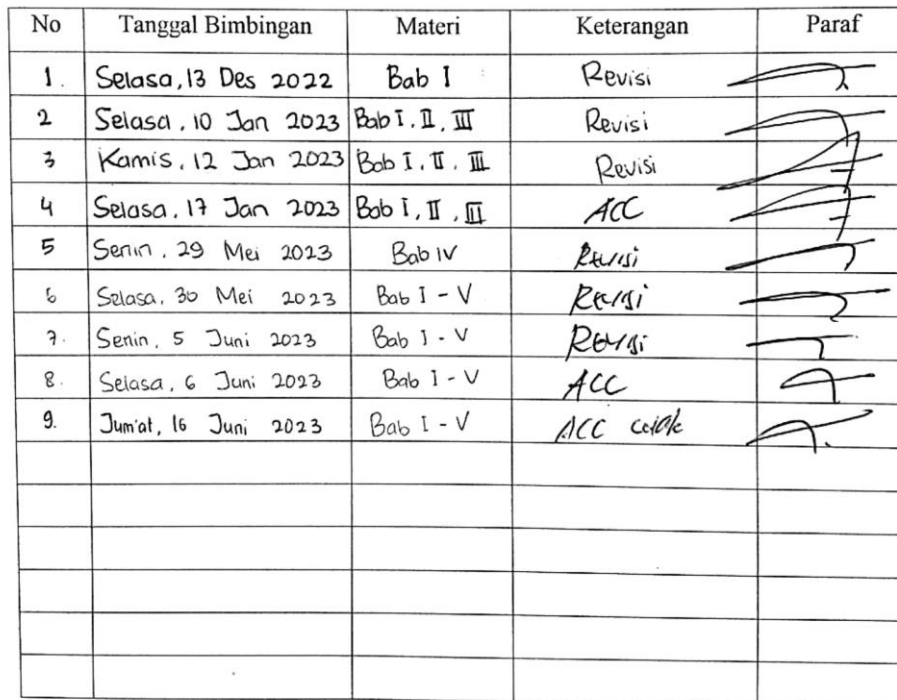 No Tanggal Bimbingan Materi Keterangan Paraf
1. Selasa, 13 Des 2022 Bab I Revisi
2 Selasa, 10 Jan 2023 Bab I, II, III Revisi
3 Kamis, 12 Jan 2023 Bab I, II, III Revisi
4 Selasa, 17 Jan 2023 Bab I, II, III ACC
5 Senin, 29 Mei 2023 Bab IV Revisi
6 Selasa, 30 Mei 2023 Bab I - V Revisi
7. Senin, 5 Juni 2023 Bab I - V Revisi
8. Selasa, 6 Juni 2023 Bab I - V ACC
9. Jum'at, 16 Juni 2023 Bab I - V ACC cetak